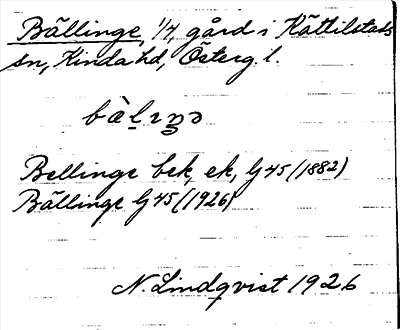 Bällinge, 1/4, gård i Kättilstads
sn, Kinda hd, Österg. l.
bällinge bek, ek, G 45 (1882)
Bällinge G 45 (1926)
N. Lindqvist 1926